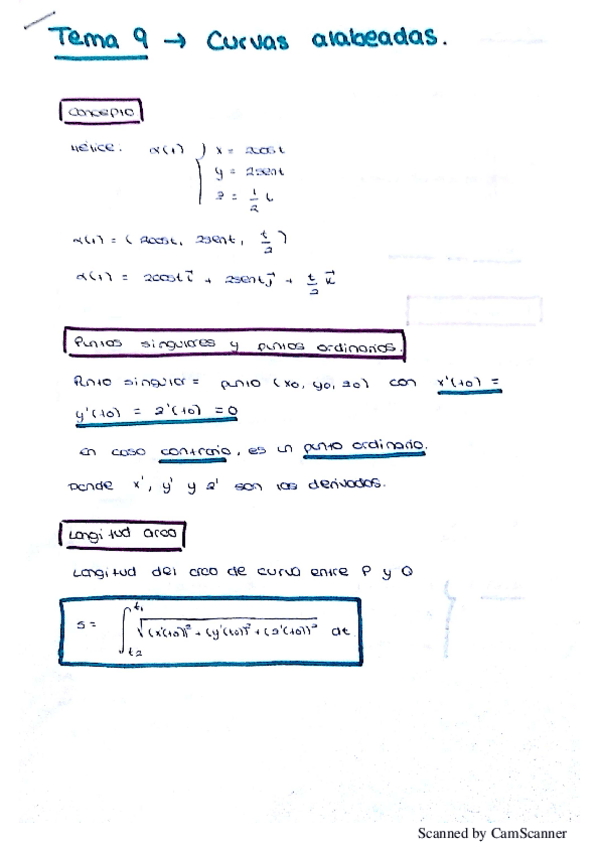 Tema 9 → Curvas alabeadas.
Concepto
Hélice: α(t) { x = 2cost
y = 2sent
z = 1/2 t
α(t) = (2cost, 2sent, t/2)
α(t) = 2cost i⃗ + 2sent j⃗ + t/2 k⃗
Puntos singulares y puntos ordinarios.
Punto singular = punto (x0, y0, z0) con x'(t0) =
y'(t0) = z'(t0) = 0
en caso contrario, es un punto ordinario.
Donde x', y' y z' son las derivadas.
Longitud arco
Longitud del arco de curva entre P y Q
s = ∫ t1 t2 √(x'(t0))² + (y'(t0))² + (z'(t0))² dt
Scanned by CamScanner